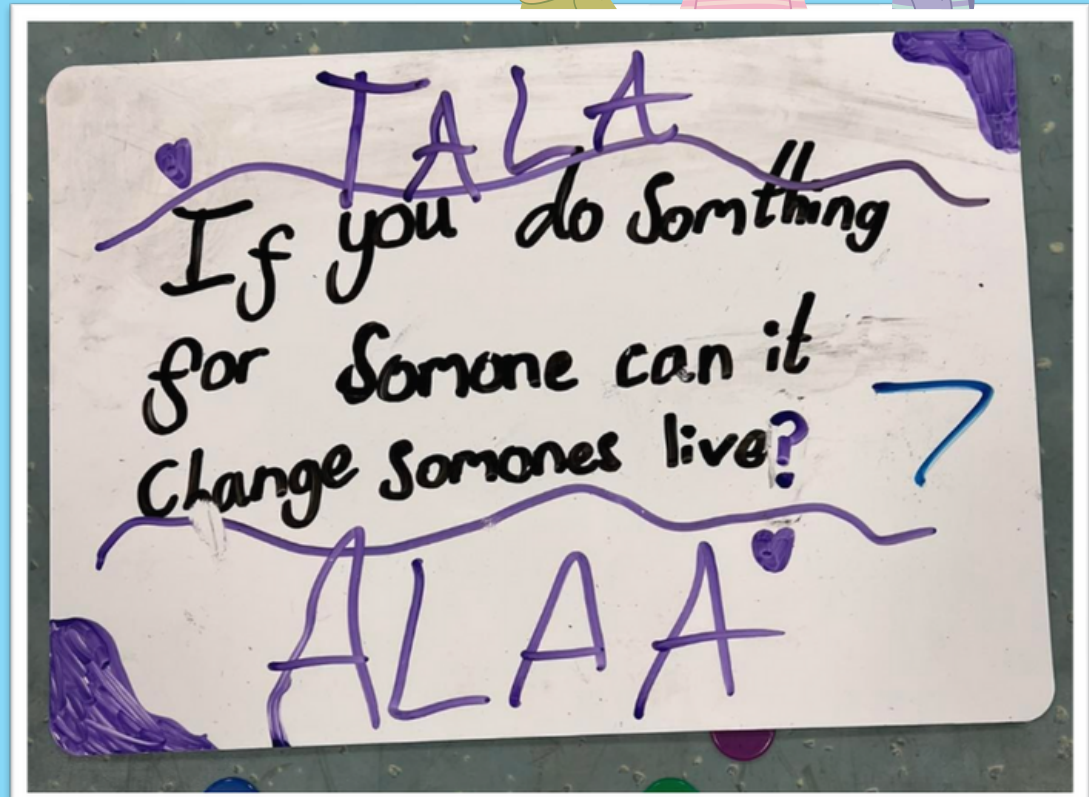 TALA
If you do Somthing
for Somone can it
Change Somones live?
7
ALAA